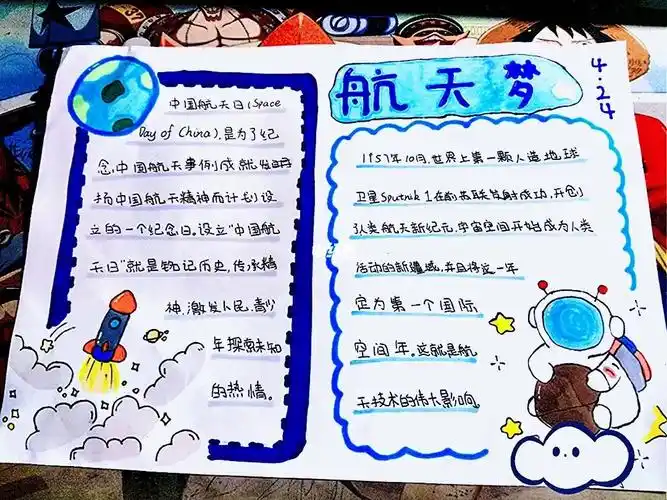 航天梦
4.24
中国航天日(Space
Day of China),是为了纪
念中国航天事例成就发明
扬中国航天精神而计划设
立的一个纪念日。设立"中国航
天日"就是铭记历史,传承精
神,激发人民,青少
年探索未知
的热情。
1957年10月,世界上第一颗人造地球
卫星Sputnik 1在前苏联发射成功,开创
了人类航天新纪元,宇宙空间开始成为人类
活动的新疆域,并且将这一年
定为第一个国际
空间年。这就是航
天技术的伟大影响。